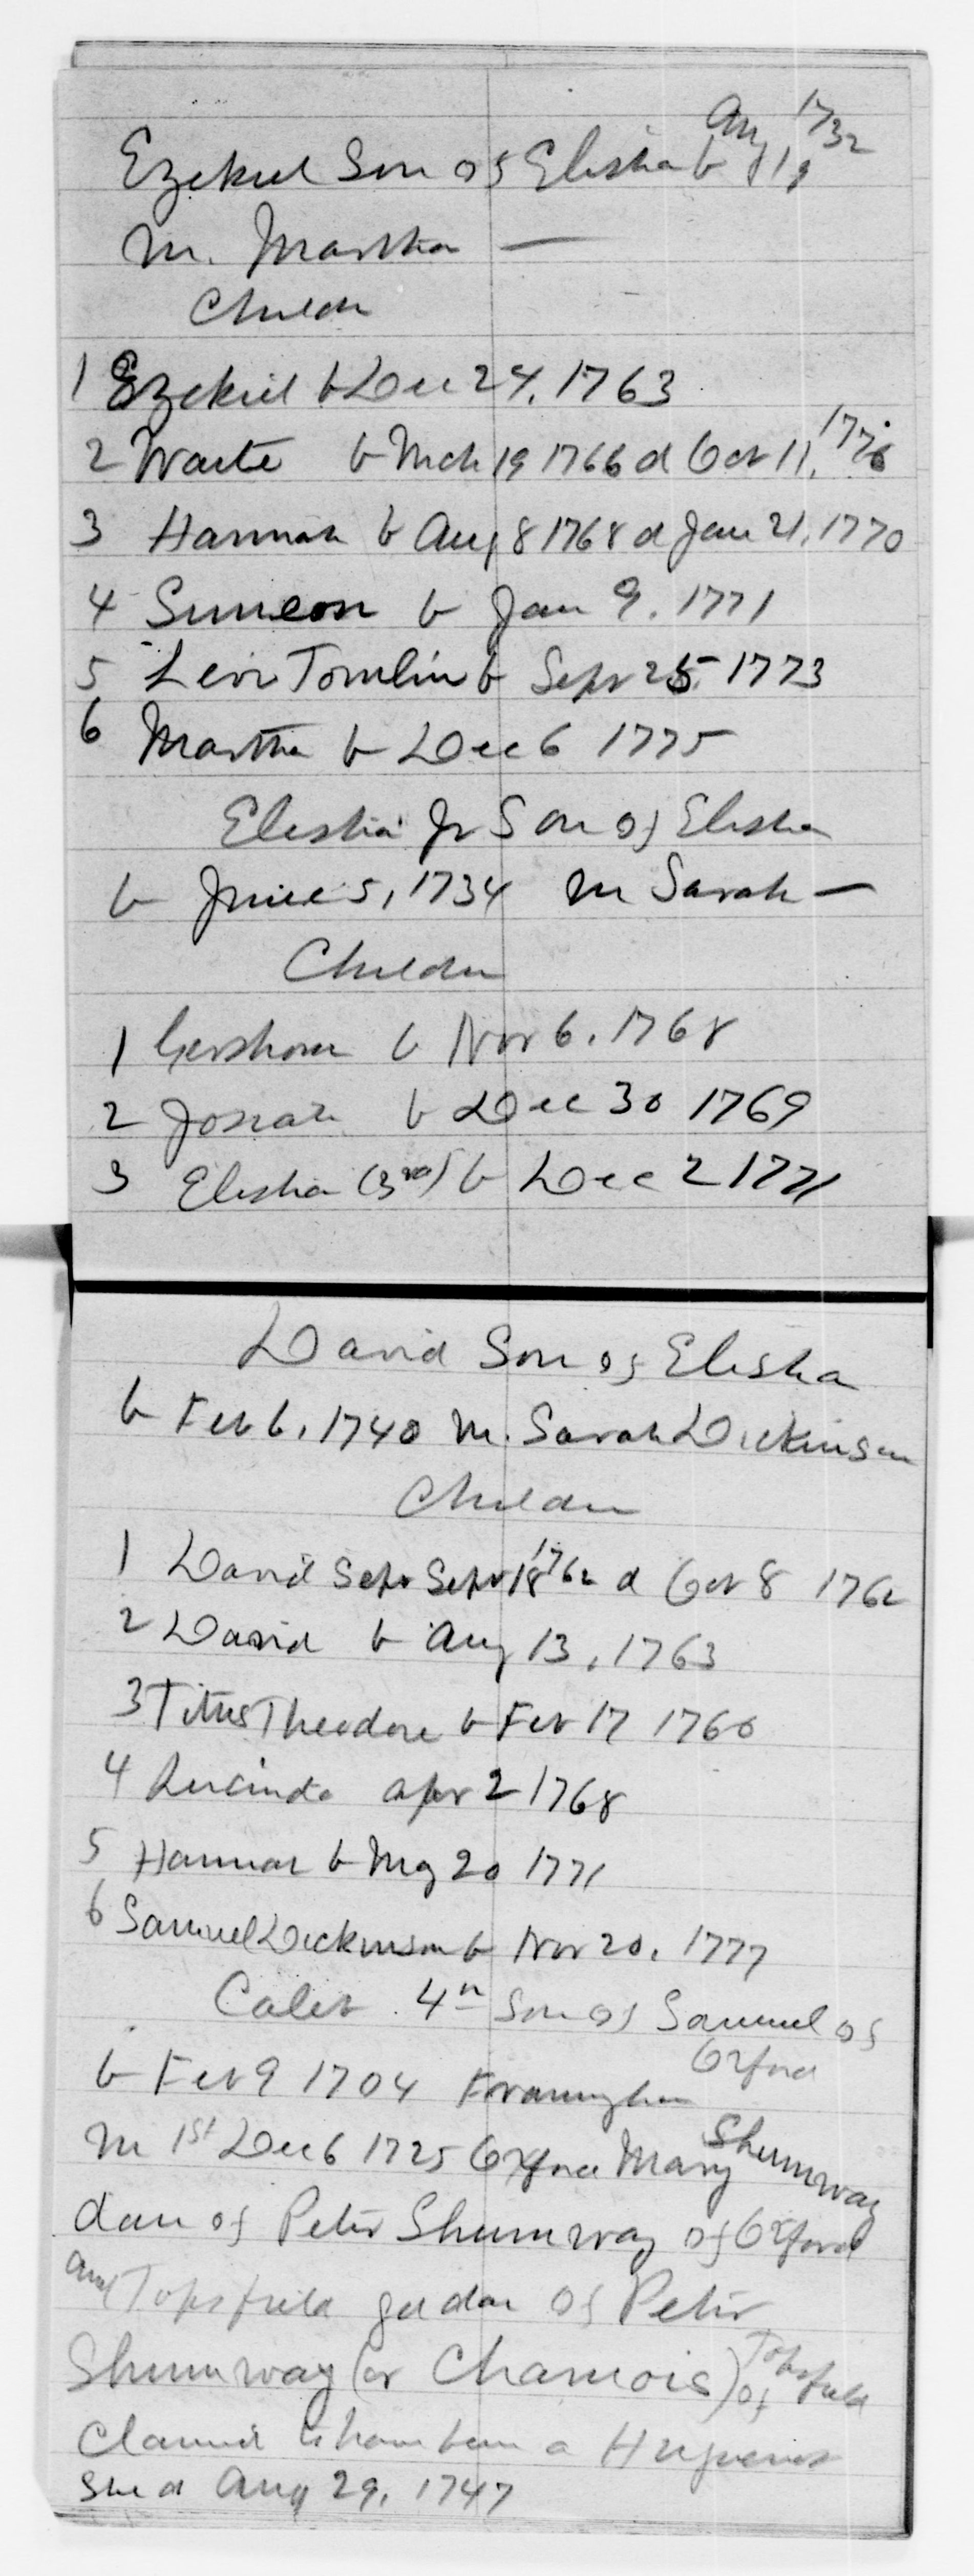 Ezekiel Son of Elisha b Aug 19 1732
m. Martha —
Childn
1 Ezekiel b Dec 24, 1763
2 Waite b Mch 19 1766 d Oct 11, 1776
3 Hannah b Aug 8 1768 d Jan 21, 1770
4 Simeon b Jan 9. 1771
5 Levi Tomlin b Sept 25 1773
6 Martha b Dec 6 1775
Elisha Jr Son of Elisha
b June 5, 1734 m Sarah —
Childn
1 Gershom b Nov 6. 1768
2 Josiah b Dec 30 1769
3 Elisha (3rd) b Dec 2 1771
David Son of Elisha
b Feb 6. 1740 m. Sarah Dickinson
Childn
1 David Sept Sept 18 1762 d Oct 8 1762
2 David b Aug 13, 1763
3 Titus Theodore b Feb 17 1760
4 Lucinda Apr 2 1768
5 Hannah b My 20 1771
6 Samuel Dickinson b Nov 20, 1777
Caleb 4th Son of Samuel of
Oxford
b Feb 9 1704 Framingham
m 1st Dec 6 1725 Oxford Mary Shumway
dau of Peter Shumway of Oxford
and Topsfield gd dau of Peter
Shumway (or Chamois) of Topsfield
Claimed to have been a Huguenot
She d Aug 29, 1747